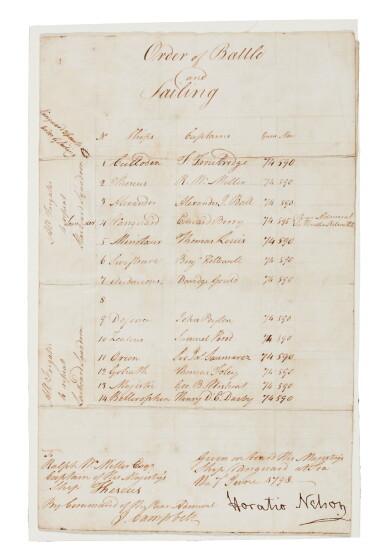 Order of Battle
and
Sailing
No Ships Captains Guns Men
1 Culloden T. Troubridge 74 590
2 Theseus R. W. Miller 74 590
3 Alexander Alexander J. Ball 74 590
4 Vanguard Edward Berry 74 595 Rear Admiral
5 Minotaur Thomas Louis 74 590
6 Swiftsure Benj Hallowell 74 590
7 Audacious Davidge Gould 74 590
8
9 Defence John Peyton 74 590
10 Zealous Samuel Hood 74 590
11 Orion Sir Jas Saumarez 74 590
12 Goliath Thomas Foley 74 590
13 Majestic Geo B. Westcott 74 590
14 Bellerophon Henry D. E. Darby 74 590
To
Ralph W. Miller Esqr
Captain of His Majesty's
Ship Theseus
By Command of the Rear Admiral
J. Campbell
Given on board His Majesty's
Ship Vanguard at Sea
June 1798
Horatio Nelson